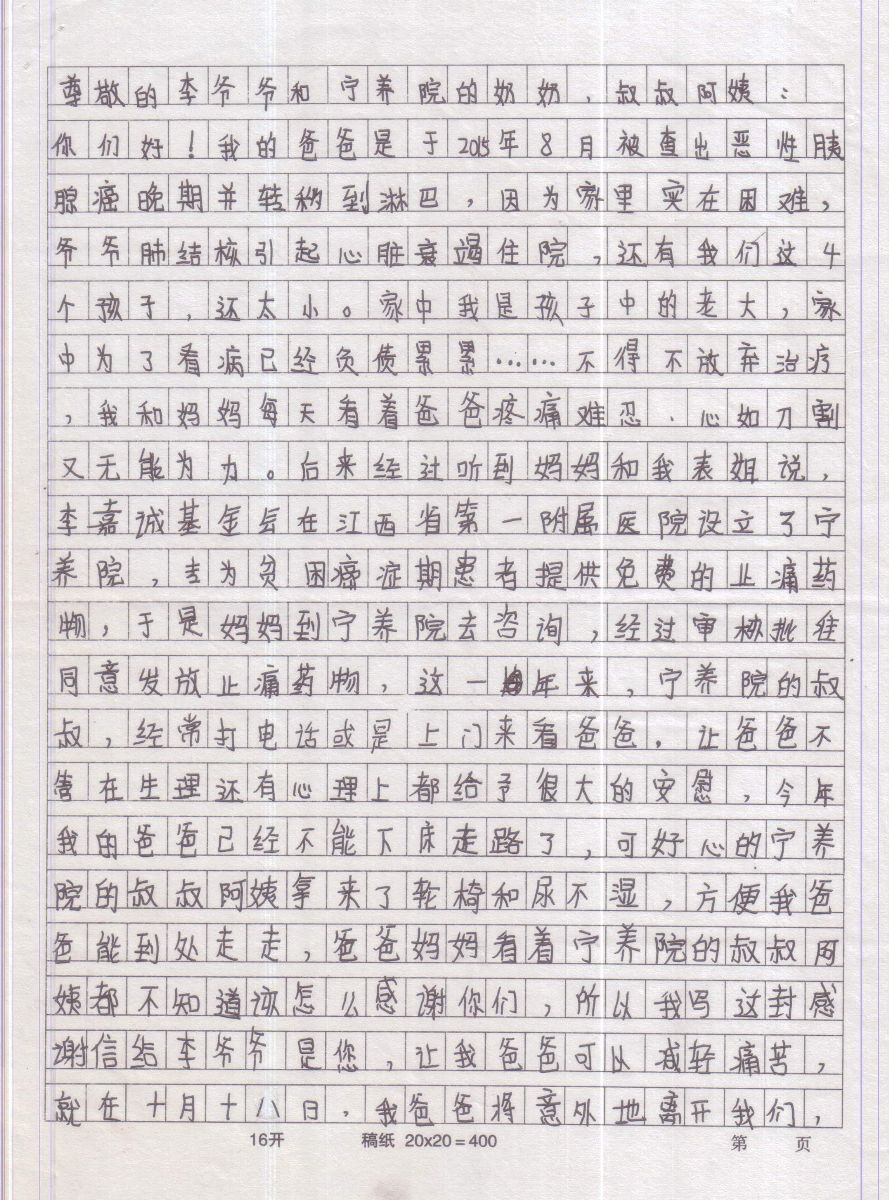 尊敬的李爷爷和宁养院的奶奶，叔叔阿姨：
你们好！我的爸爸是于2015年8月被查出恶性胰
腺癌晚期并转移到淋巴，因为家里实在困难，
爷爷肺结核引起心脏衰竭住院，还有我们这4
个孩子，还太小。家中我是孩子中的老大，家
中为了看病已经负债累累……不得不放弃治疗
，我和妈妈每天看着爸爸疼痛难忍、心如刀割
又无能为力。后来经过听到妈妈和我表姐说，
李嘉诚基金会在江西省第一附属医院设立了宁
养院，专为贫困癌症期患者提供免费的止痛药
物，于是妈妈到宁养院去咨询，经过审核批准
同意发放止痛药物，这一年来，宁养院的叔
叔，经常打电话或是上门来看爸爸，让爸爸不
管在生理还有心理上都给予很大的安慰，今年
我的爸爸已经不能下床走路了，可好心的宁养
院的叔叔阿姨拿来了轮椅和尿不湿，方便我爸
爸能到处走走，爸爸妈妈看着宁养院的叔叔阿
姨都不知道该怎么感谢你们，所以我写这封感
谢信给李爷爷是您，让我爸爸可以减轻痛苦，
就在十月十八日，我爸爸将意外地离开我们，
16开 稿纸 20×20=400 第 页